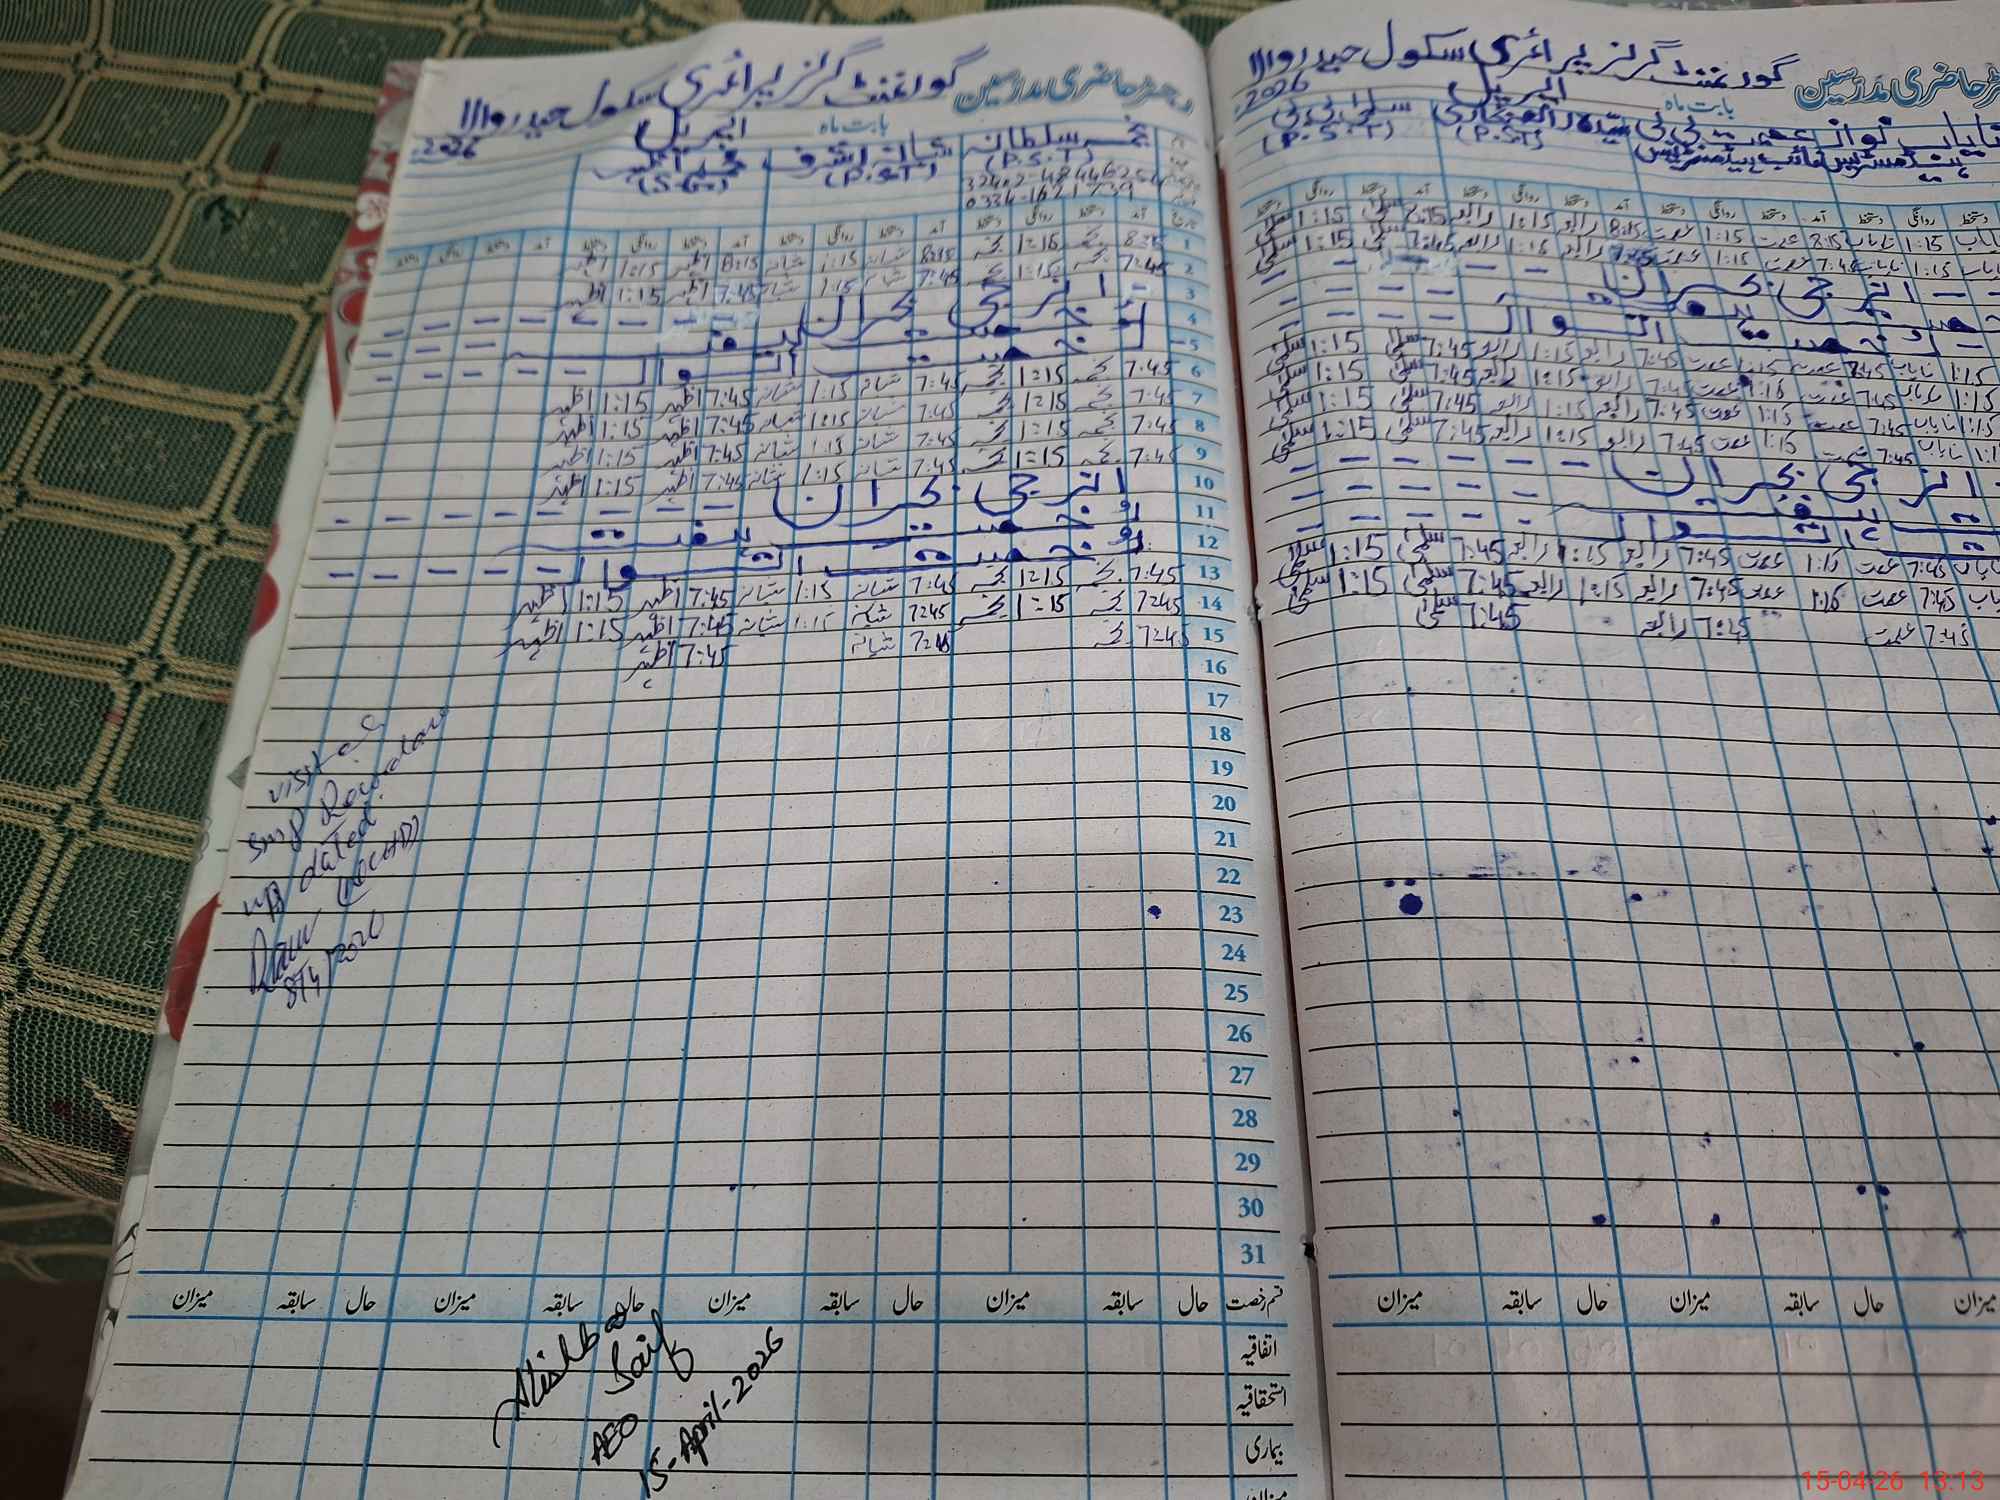 رجسٹر حاضری مدرسین گورنمنٹ گرلز پرائمری سکول حیدر والا
بابت ماہ اپریل 2026
نجمہ سلطانہ شبانہ اشرف
(P.S.T) (P.S.T) (S.G)
تاریخ آمد دستخط روانگی دستخط آمد دستخط روانگی دستخط آمد دستخط روانگی دستخط آمد دستخط روانگی دستخط
1 8:15 نجمہ 1:15 نجمہ 8:15 شبانہ 1:15 شبانہ 8:15 اظہر 1:15 اظہر
2 7:45 نجمہ 1:15 نجمہ 7:45 شبانہ 1:15 شبانہ 7:45 اظہر 1:15 اظہر
3 انرجی بحران
4 رخصت ہفتہ
5 رخصت اتوار
6 7:45 نجمہ 1:15 نجمہ 7:45 شبانہ 1:15 شبانہ 7:45 اظہر 1:15 اظہر
7 7:45 نجمہ 1:15 نجمہ 7:45 شبانہ 1:15 شبانہ 7:45 اظہر 1:15 اظہر
8 7:45 نجمہ 1:15 نجمہ 7:45 شبانہ 1:15 شبانہ 7:45 اظہر 1:15 اظہر
9 7:45 نجمہ 1:15 نجمہ 7:45 شبانہ 1:15 شبانہ 7:45 اظہر 1:15 اظہر
10 انرجی بحران
11 رخصت ہفتہ
12 رخصت اتوار
13 7:45 نجمہ 1:15 نجمہ 7:45 شبانہ 1:15 شبانہ 7:45 اظہر 1:15 اظہر
14 7:45 نجمہ 1:15 نجمہ 7:45 شبانہ 1:15 شبانہ 7:45 اظہر 1:15 اظہر
15 7:45 نجمہ 7:45 شبانہ 7:45 اظہر
16
17
18
19
20
21
22
23
24
25
26
27
28
29
30
31
visit
dated
قسم رخصت حال سابقہ میزان حال سابقہ میزان حال سابقہ میزان حال سابقہ میزان
اتفاقیہ
استحقاقیہ
بیماری
میزان
Alishba
Saif
AEO
15-April-2026
حاضری مدرسین گورنمنٹ گرلز پرائمری سکول حیدر والا
بابت ماہ اپریل 2026
نایاب نواز عصمت بی بی سیدہ رابعہ بخاری سلمٰی بی بی
ہیڈمسٹریس نائب ہیڈمسٹریس (P.S.T) (P.S.T)
دستخط روانگی دستخط آمد دستخط روانگی دستخط آمد دستخط روانگی دستخط آمد دستخط روانگی دستخط
نایاب 1:15 نایاب 8:15 عصمت 1:15 عصمت 8:15 رابعہ 1:15 رابعہ 8:15 سلمٰی 1:15 سلمٰی
نایاب 1:15 نایاب 7:45 عصمت 1:15 عصمت 7:45 رابعہ 1:15 رابعہ 7:45 سلمٰی 1:15 سلمٰی
انرجی بحران
رخصت ہفتہ
رخصت اتوار
1:15 نایاب 7:45 عصمت 1:15 عصمت 7:45 رابعہ 1:15 رابعہ 7:45 سلمٰی 1:15 سلمٰی
1:15 نایاب 7:45 عصمت 1:15 عصمت 7:45 رابعہ 1:15 رابعہ 7:45 سلمٰی 1:15 سلمٰی
1:15 نایاب 7:45 عصمت 1:15 عصمت 7:45 رابعہ 1:15 رابعہ 7:45 سلمٰی 1:15 سلمٰی
نایاب 7:45 عصمت 1:15 عصمت 7:45 رابعہ 1:15 رابعہ 7:45 سلمٰی 1:15 سلمٰی
انرجی بحران
ہفتہ
اتوار
نایاب 7:45 عصمت 1:15 عصمت 7:45 رابعہ 1:15 رابعہ 7:45 سلمٰی 1:15 سلمٰی
نایاب 7:45 عصمت 1:15 عصمت 7:45 رابعہ 1:15 رابعہ 7:45 سلمٰی 1:15 سلمٰی
7:45 عصمت 7:45 رابعہ 7:45 سلمٰی
میزان حال سابقہ میزان حال سابقہ میزان
15-04-26 13:13